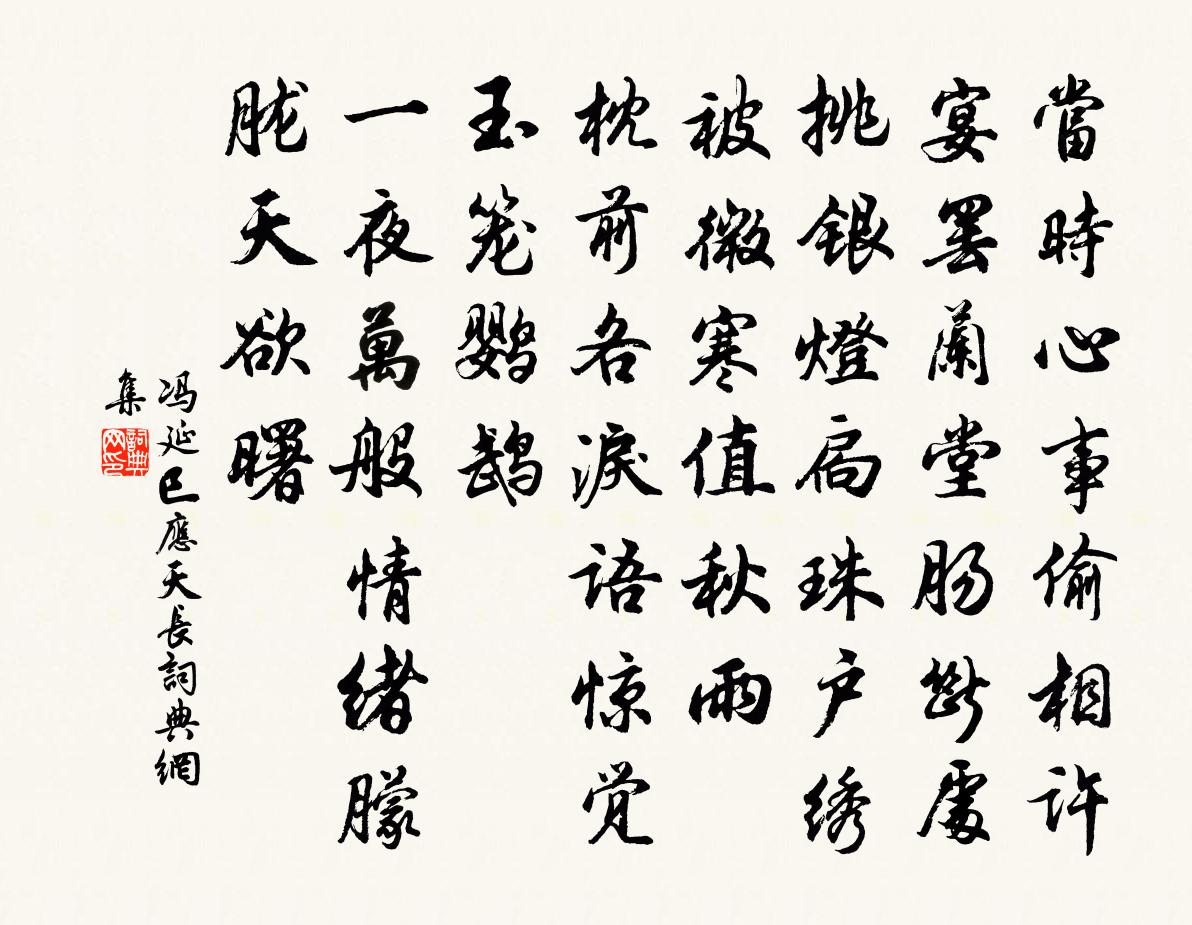 當時心事偷相許
宴罢蘭堂肠斷處
挑銀燈扃珠户绣
被微寒值秋雨
枕前各淚语惊觉
玉笼鹦鹉
一夜萬般情緒朦
胧天欲曙
冯延巳應天長詞典網
集
詞典
网印